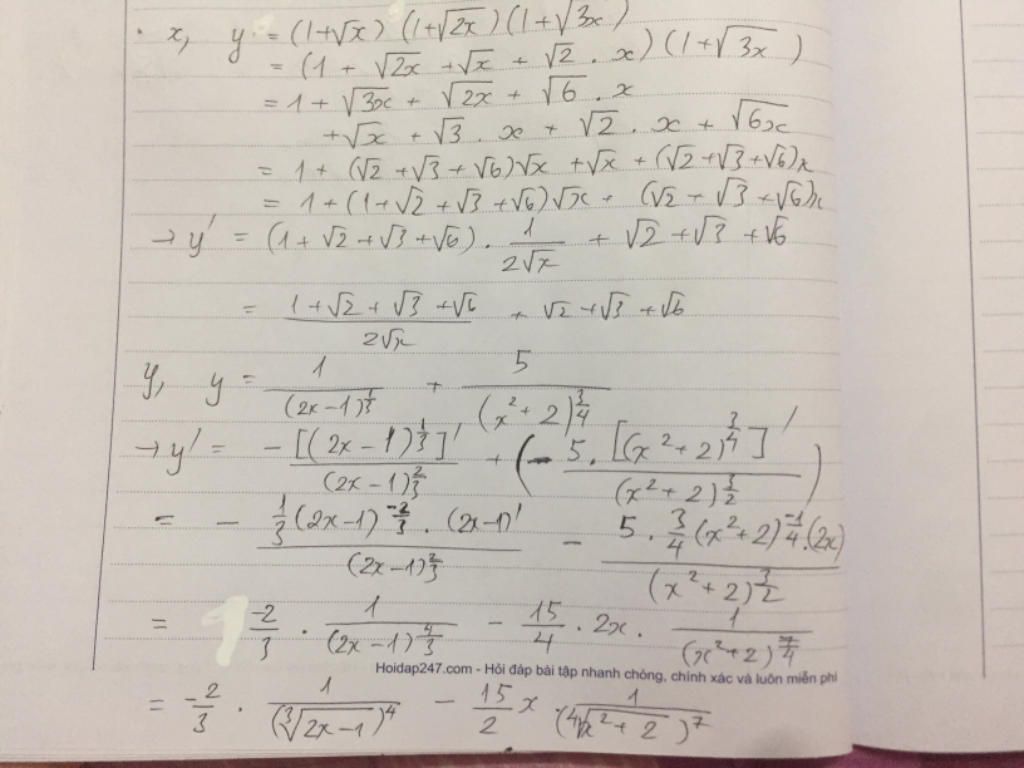 x, y = (1+√x)(1+√2x)(1+√3x)
= (1 + √2x + √x + √2 . x)(1+√3x)
= 1 + √3x + √2x + √6 . x
+√x + √3 . x + √2 . x + √6x
= 1 + (√2 + √3 + √6)√x + √x + (√2 + √3 + √6)x
= 1 + (1+√2 + √3 + √6)√x + (√2 + √3 + √6)x
→ y' = (1 + √2 + √3 + √6) . 1/(2√x) + √2 + √3 + √6
= (1 + √2 + √3 + √6)/(2√x) + √2 + √3 + √6
y, y = 1/(2x-1)^(1/3) + 5/(x² + 2)^(3/4)
→ y' = - [(2x-1)^(1/3)]'/(2x-1)^(2/3) + (- 5.[(x²+2)^(3/4)]'/(x²+2)^(3/2))
= - (1/3 (2x-1)^(-2/3) . (2x-1)')/(2x-1)^(2/3) - (5 . 3/4 (x²+2)^(-1/4) . (2x))/(x²+2)^(3/2)
= -2/3 . 1/(2x-1)^(4/3) - 15/4 . 2x . 1/(x²+2)^(7/4)
Hoidap247.com - Hỏi đáp bài tập nhanh chóng, chính xác và luôn miễn phí
= -2/3 . 1/(∛(2x-1))^4 - 15/2 x 1/(∜(x²+2))^7